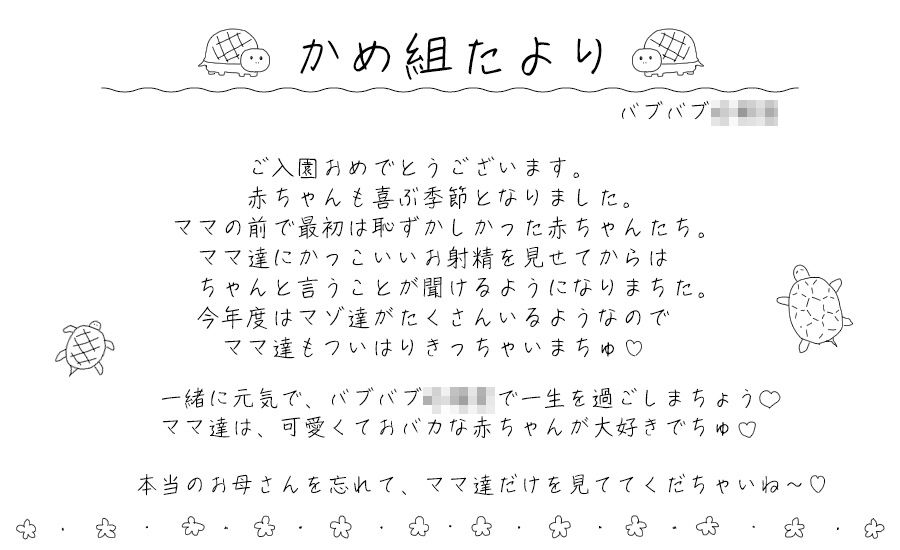 かめ組たより
バブバブ
ご入園おめでとうございます。
赤ちゃんも喜ぶ季節となりました。
ママの前で最初は恥ずかしかった赤ちゃんたち。
ママ達にかっこいいお射精を見せてからは
ちゃんと言うことが聞けるようになりまちた。
今年度はマゾ達がたくさんいるようなので
ママ達もついはりきっちゃいまちゅ♡
一緒に元気で、バブバブで一生を過ごしまちょう♡
ママ達は、可愛くておバカな赤ちゃんが大好きでちゅ♡
本当のお母さんを忘れて、ママ達だけを見ててくだちゃいね～♡